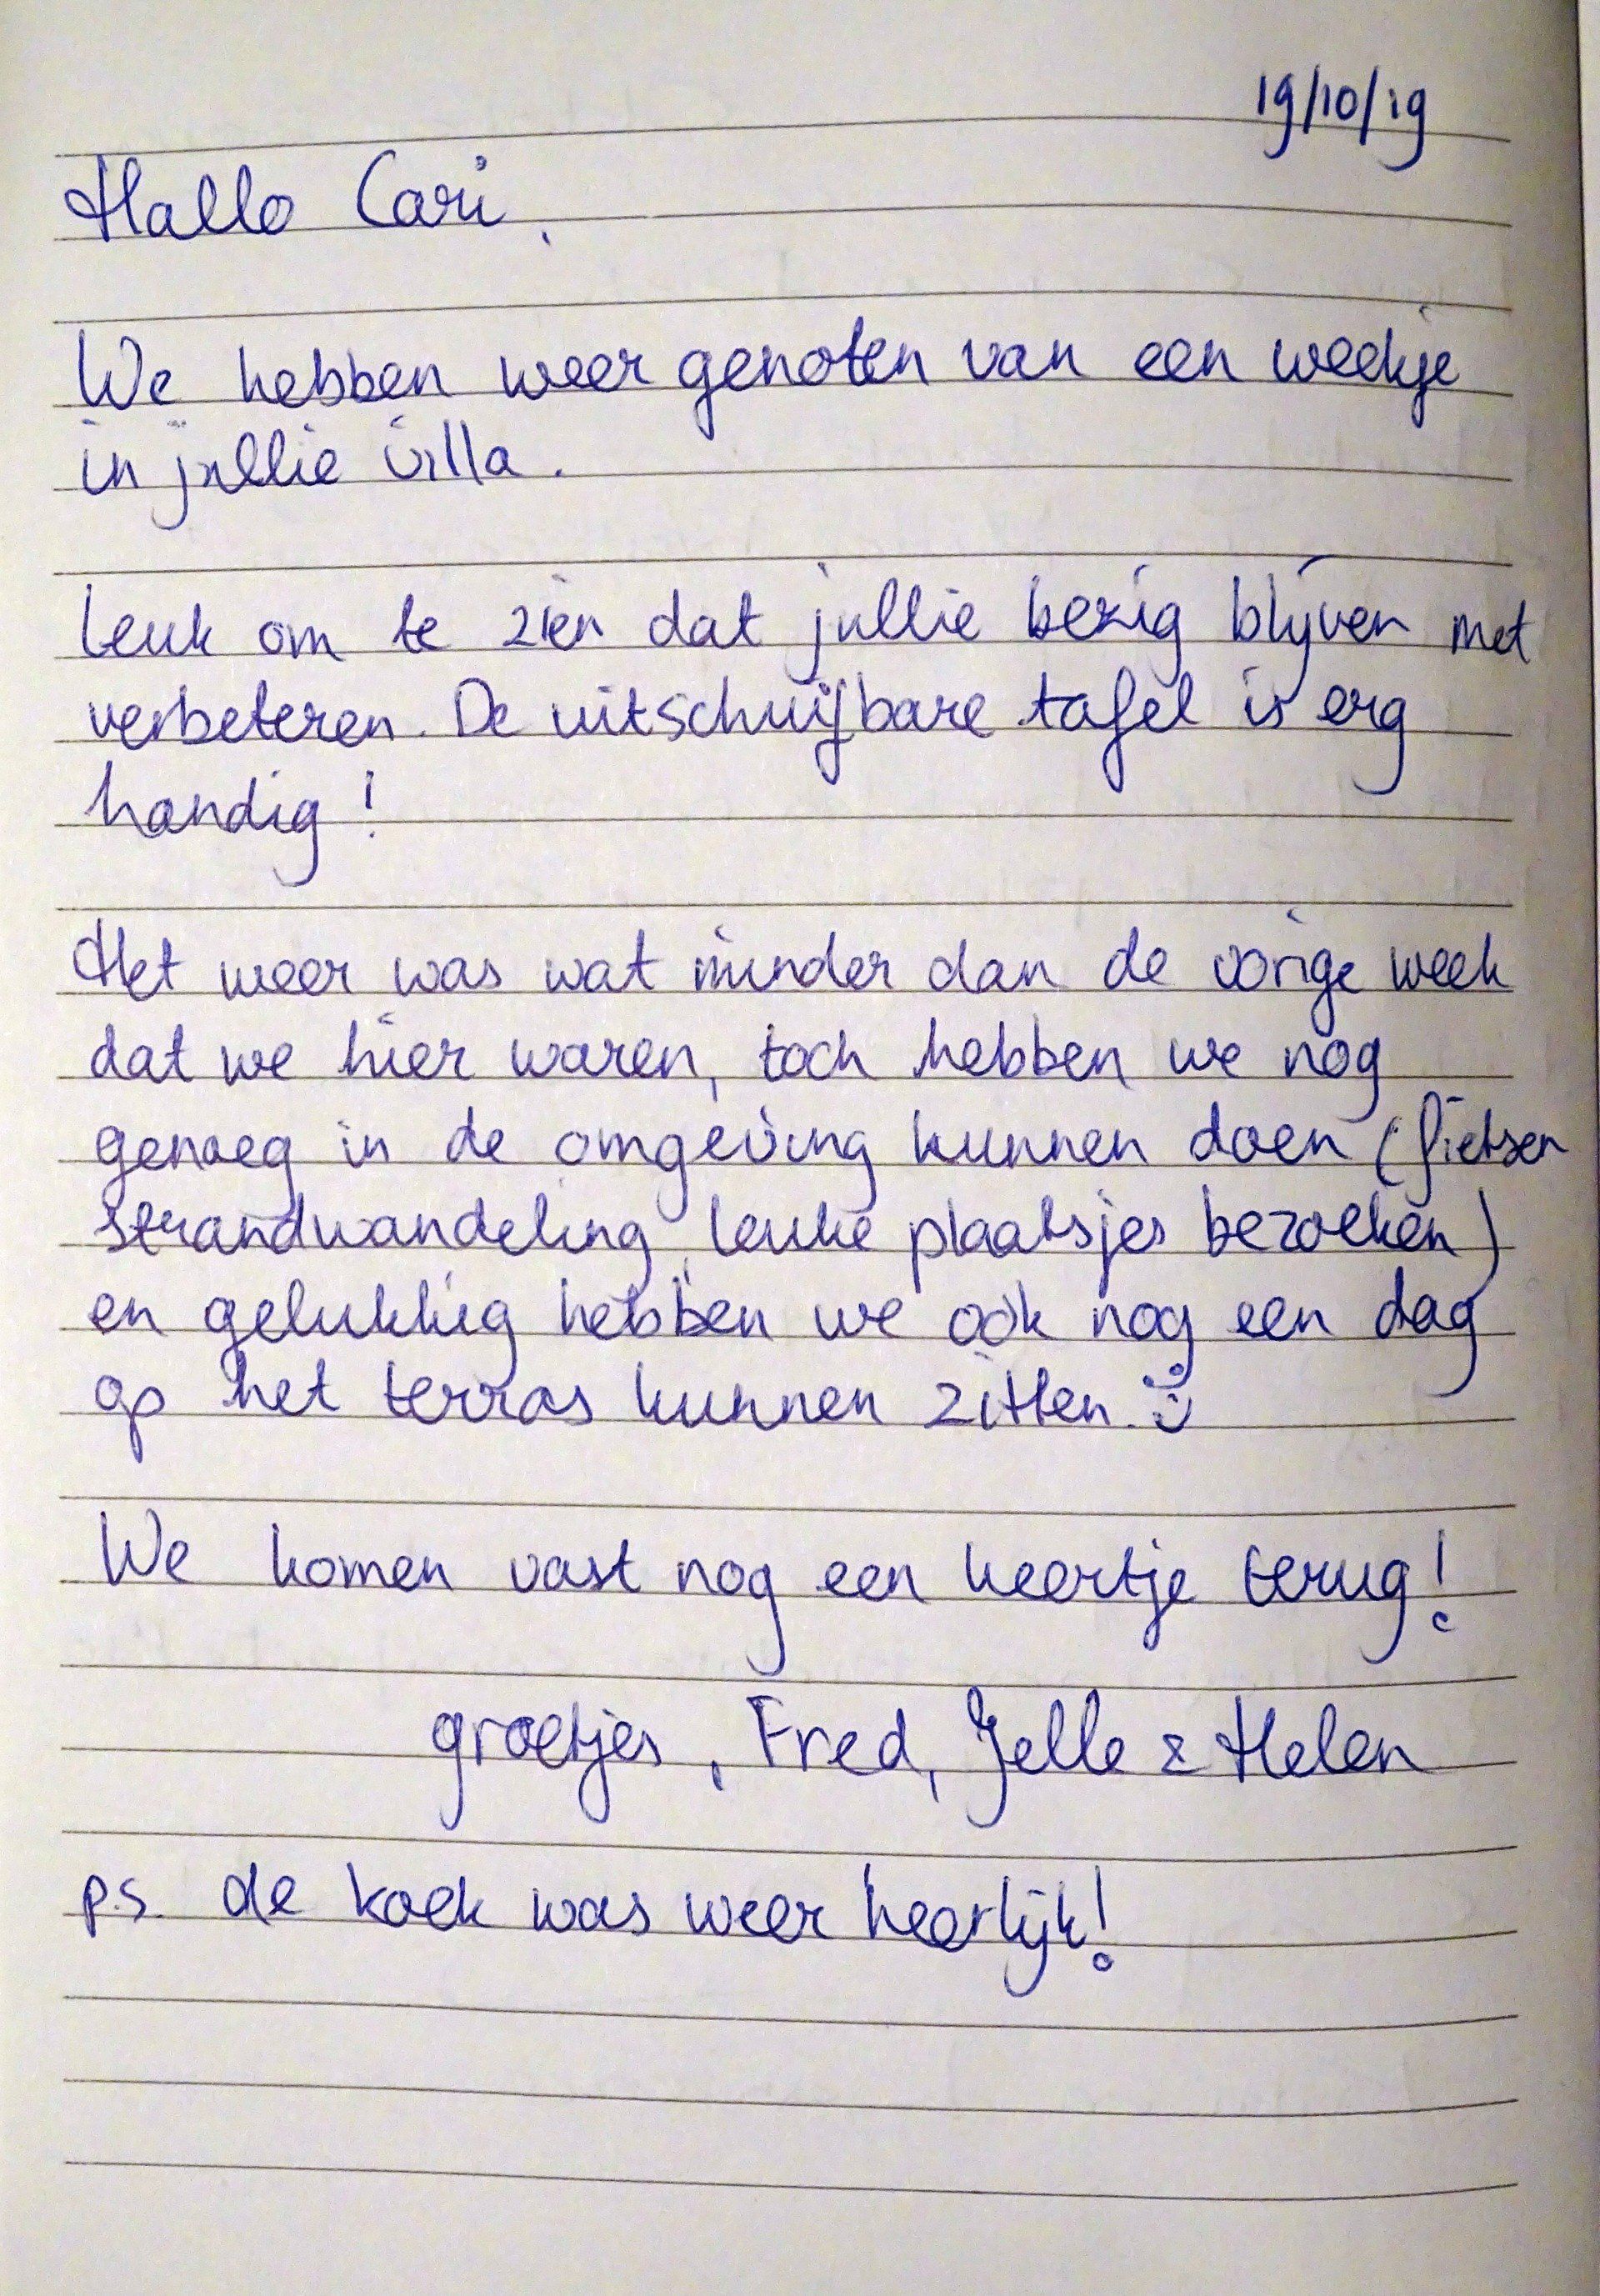 19/10/19
Hallo Cari,
We hebben weer genoten van een weekje
in jullie villa.
Leuk om te zien dat jullie bezig blijven met
verbeteren. De uitschuifbare tafel is erg
handig!
Het weer was wat minder dan de vorige week
dat we hier waren, toch hebben we nog
genoeg in de omgeving kunnen doen (fietsen
strandwandeling, leuke plaatsjes bezoeken)
en gelukkig hebben we ook nog een dag
op het terras kunnen zitten. :)
We komen vast nog een keertje terug!
groetjes, Fred, Jelle & Helen
p.s. de koek was weer heerlijk!